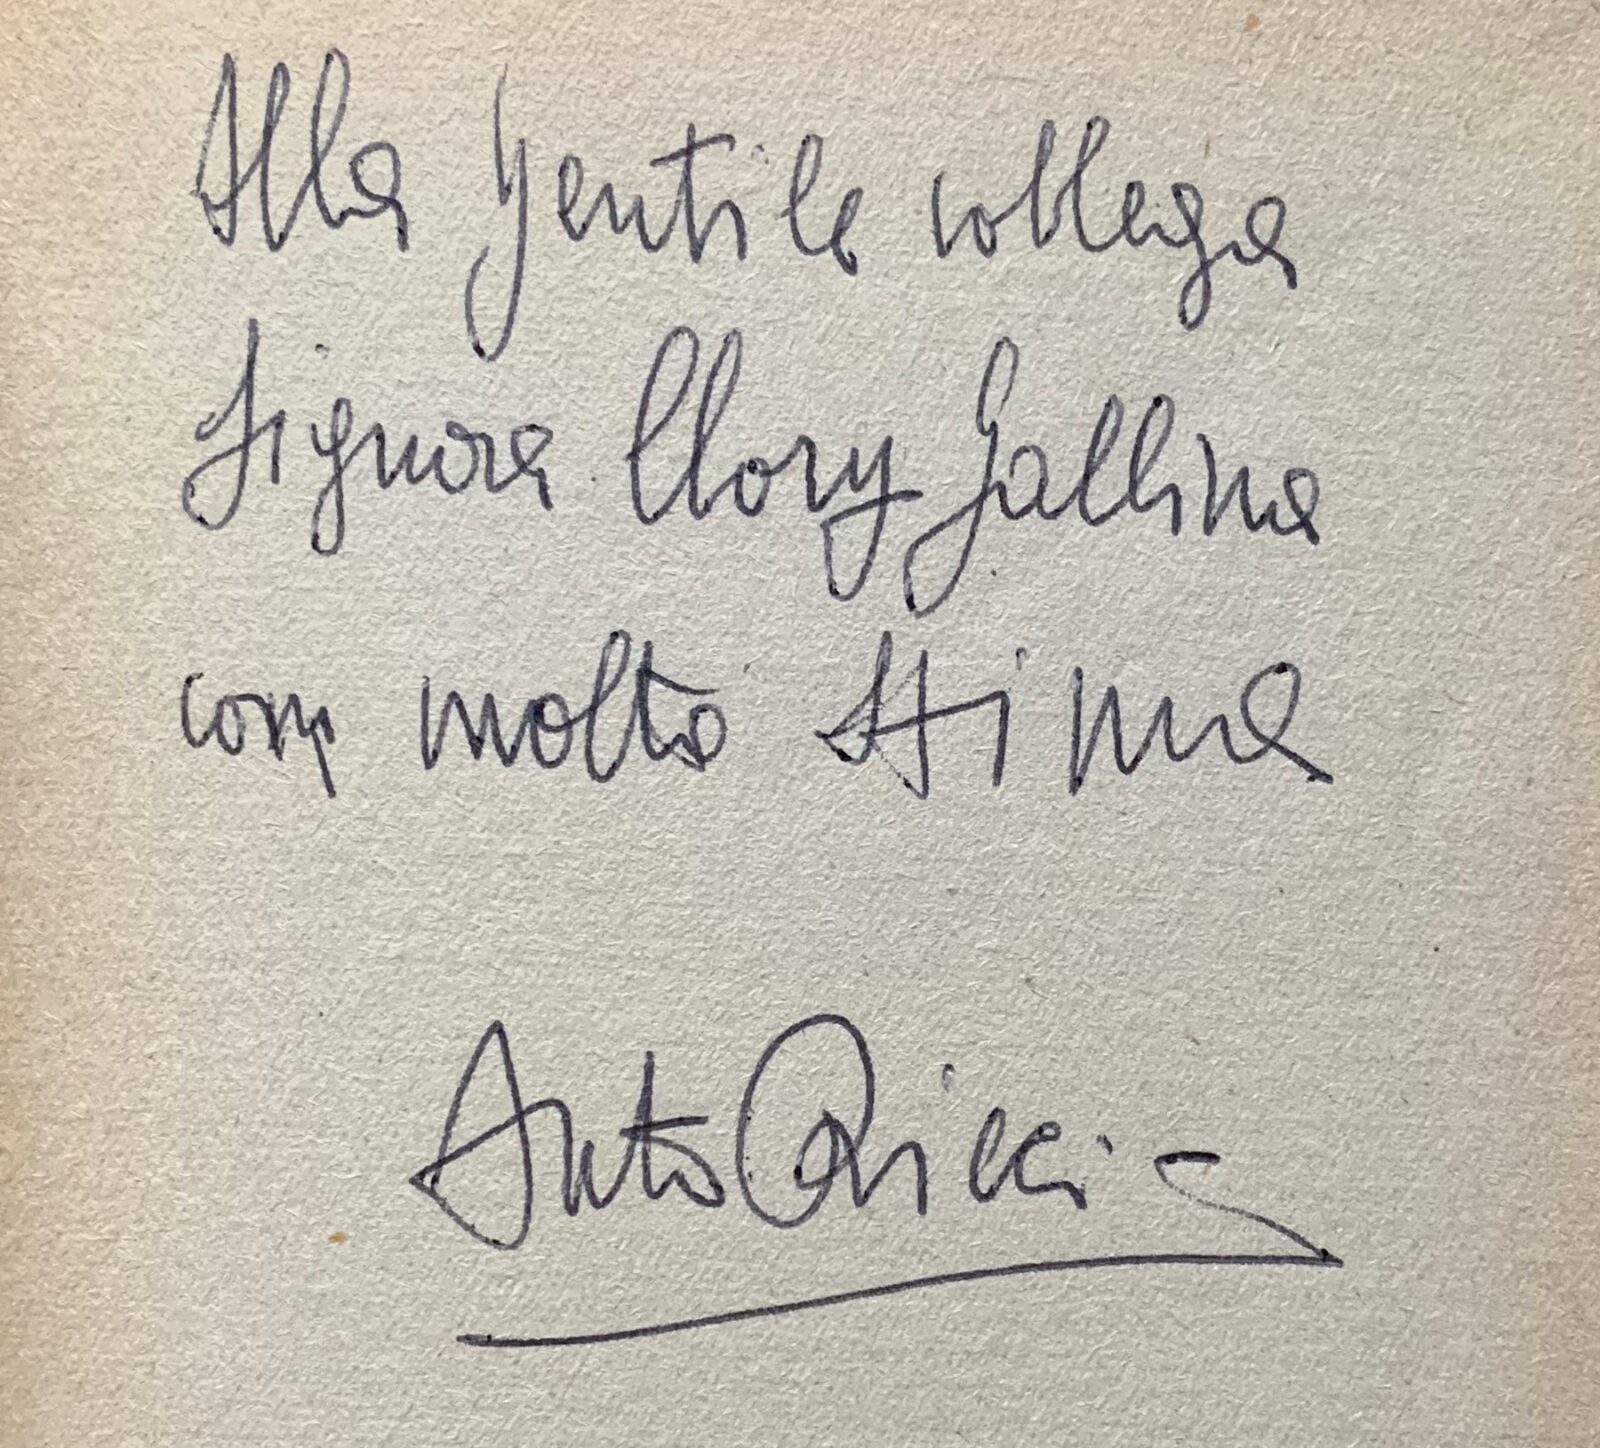 Alla gentile collega
Signora Clory Gallina
con molta stima
Anto Ricci